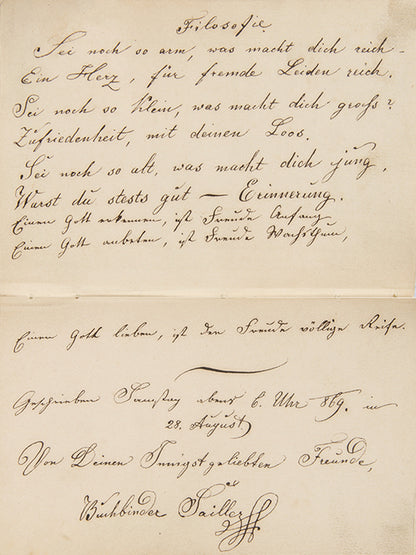 Filosofie.
Sei noch so arm, was macht dich reich -
Ein Herz, für fremde Leiden reich.
Sei noch so klein, was macht dich groß?
Zufriedenheit, mit deinen Loos.
Sei noch so alt, was macht dich jung,
Warst du stests gut — Erinnerung.
Einen Gott erkennen, ist Freude Anfang
Einen Gott anbeten, ist Freude Wachsthum,
Einen Gott lieben, ist der Freude völlige Reife.
Geschrieben Samstag abens 6. Uhr 869. in
28. August
Von Deinen Innigst geliebten Freunde,
Buchbinder Sailler